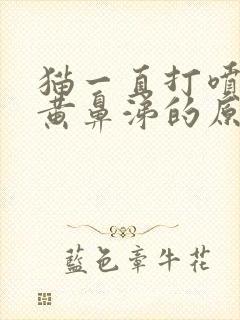 猫一直打喷
黄鼻涕的原
蓝色牵牛花